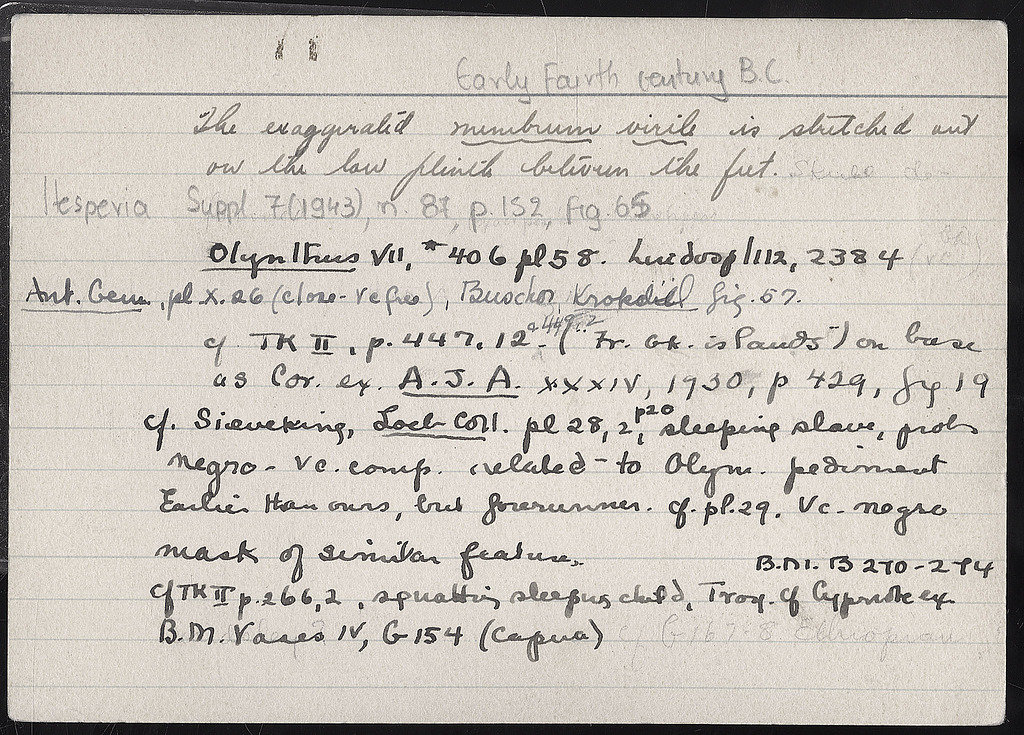 Early Fourth century B.C.
The exaggerated membrum virile is stretched out
on the low plinth between the feet.
Hesperia Suppl. 7 (1943), n. 87, p. 152, Fig. 65
Olynthus VII, #406 pl 58. 112, 2384
Ant. Gem., pl. X. 26 (close-), Buschor Krokodil fig. 57.
cf TK II, p. 447, 12. 449, 2 ("Fr. Gk. islands") on base
as Cor. ex. A.J.A. XXXIV, 1930, p 429, fig 19
cf. Sieveking, Loeb Coll. pl 28, 2, p20 sleeping slave, prob
negro - Vc. comp. related to Olym. pediment
Earlier than ours, but forerunner. cf. pl. 29. Vc - negro
mask of similar feature.
B.M. B 270-274
cf TK II p. 266, 2, squatting sleeping child, Troy. cf Cypriote ex.
B.M. Vases IV, G 154 (Capua) G 167-8 Ethiopian